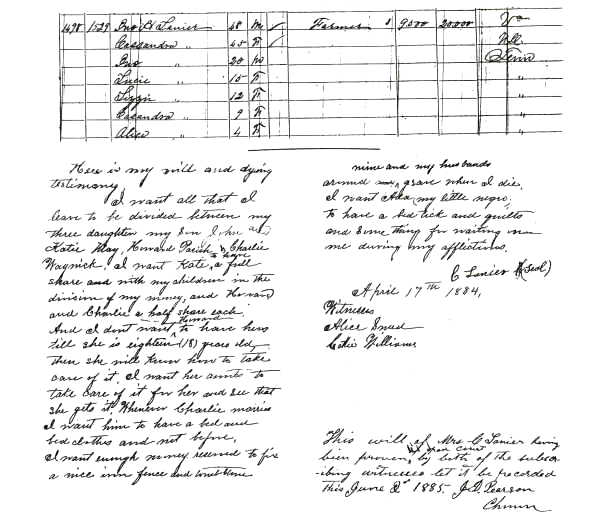 1498 1529 Jno H Lanier 48 m Farmer 9500 20000 Va
Cassandra " 45 F N.C.
Jno 20 m Tenn
Lucie " 15 F "
Lizzie " 12 F "
Casandra " 9 F "
Alice " 4 F "
Here is my will and dying
testimony
I want all that I
leave to be divided between my
three daughters my Son John and
Katie May, Howard Parish & Charlie
Waynick. I want Kate, to have a full
share and with my children in the
division of my money, and Howard
and Charlie a half share each.
And I dont want Howard to have hers
till she is eighteen (18) years old,
then she will know how to take
care of it. I want her aunts to
take care of it for her and see that
she gets it. Whenever Charlie marries
I want him to have a bed and
bed cloths and not before,
I want enough money reserved to fix
a nice iron fence and tomb stone
mine and my husbands
around grave when I die,
I want Ada my little negro,
to have a bed tick and quilts
and some thing for waiting on
me during my afflictions.
C Lanier (Seal)
April 17th 1884,
Witnesses
Alice Sneed
Catie Williams
This will of Mrs C Lanier having
been proven in open Court by both of the subscr
-ibing witnesses let it be recorded
This June 2d 1885. J.D. Pearson
Chmn